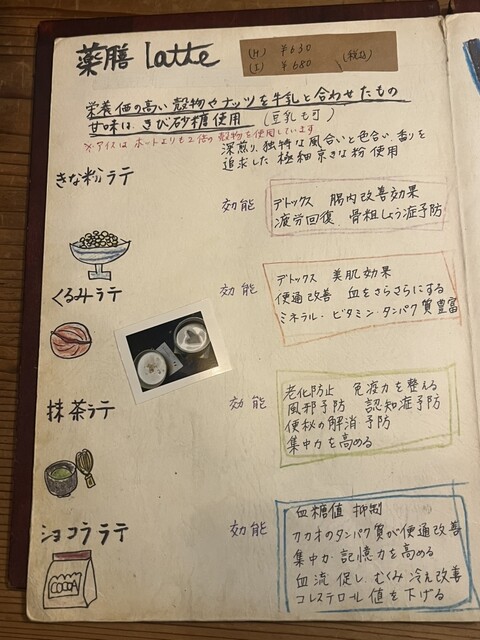 薬膳 latte
(H) ¥630
(I) ¥680 (税込)
栄養価の高い穀物やナッツを牛乳と合わせたもの
甘味は、きび砂糖使用 (豆乳も可)
※アイスは ホットよりも2倍の穀物を使用しています
深煎り、独特な風合いと色合い、香りを
追求した 極細 京きな粉 使用
きな粉ラテ
効能
デトックス 腸内改善効果
疲労回復、骨粗しょう症予防
くるみラテ
効能
デトックス 美肌効果
便通改善 血をさらさらにする
ミネラル・ビタミン・タンパク質豊富
抹茶ラテ
効能
老化防止 免疫力を整える
風邪予防 認知症予防
便秘の解消 予防
集中力を高める
ショコララテ
効能
血糖値 抑制
カカオのタンパク質が便通改善
集中力・記憶力を高める
血流促し、むくみ冷え改善
コレステロール値を下げる
COCOA